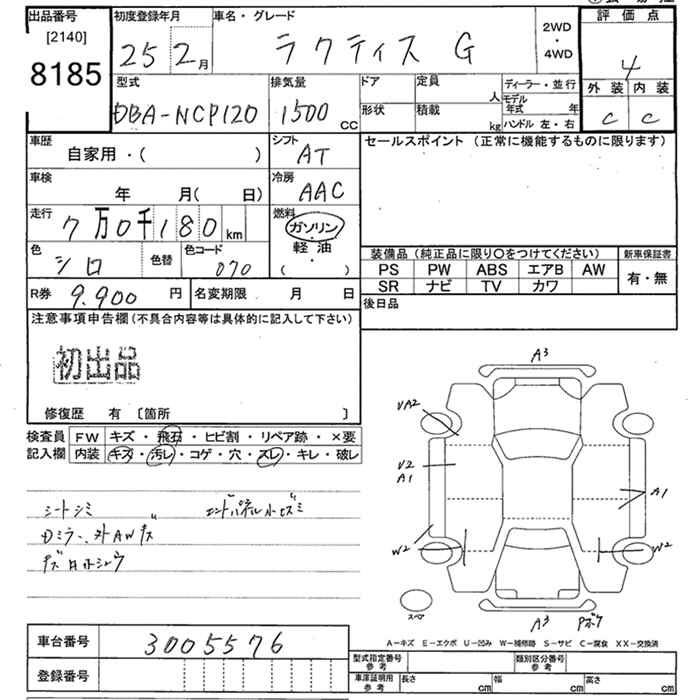 出品番号
[2140]
8185
初度登録年月
25 2月
車名・グレード
ラクティス G
2WD
・
4WD
評価点
4
外装 内装
C C
型式
DBA-NCP120
排気量
1500 CC
ドア
形状
定員 人
積載 kg
ディーラー・並行
モデル年式 年
ハンドル 左・右
車歴
自家用・( )
シフト
AT
セールスポイント (正常に機能するものに限ります)
車検
年 月( 日)
冷房
AAC
走行
7万0千180km
燃料
ガソリン・
軽油・
( )
色
シロ
色替
色コード
070
装備品(純正品に限り〇をつけてください)
新車保証書
PS PW ABS エアB AW
SR ナビ TV カワ
有・無
R券 9.900円
名変期限 月 日
後日品
注意事項申告欄(不具合内容等は具体的に記入して下さい)
初出品
修復歴 有 〔箇所 〕
検査員記入欄
FW キズ・飛石・ヒビ割・リペア跡・×要
内装 キズ・汚レ・コゲ・穴・スレ・キレ・破レ
シートシミ
エンドパネル小ヒズミ
Dミラー、外AWキズ
A3
UA2
U2
A1
A1
W2
W2
スペア
A3
A-キズ E-エクボ U-凹み W-補修跡 S-サビ C-腐食 XX-交換済
車台番号 3005576
登録番号
型式指定番号
参考
類別区分番号
参考
車庫証明用
参考
長さ cm
幅 cm
高さ cm